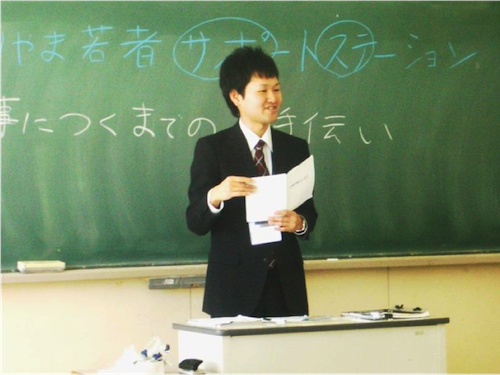 やま若者サポートステーション
事につくまでの 手伝い